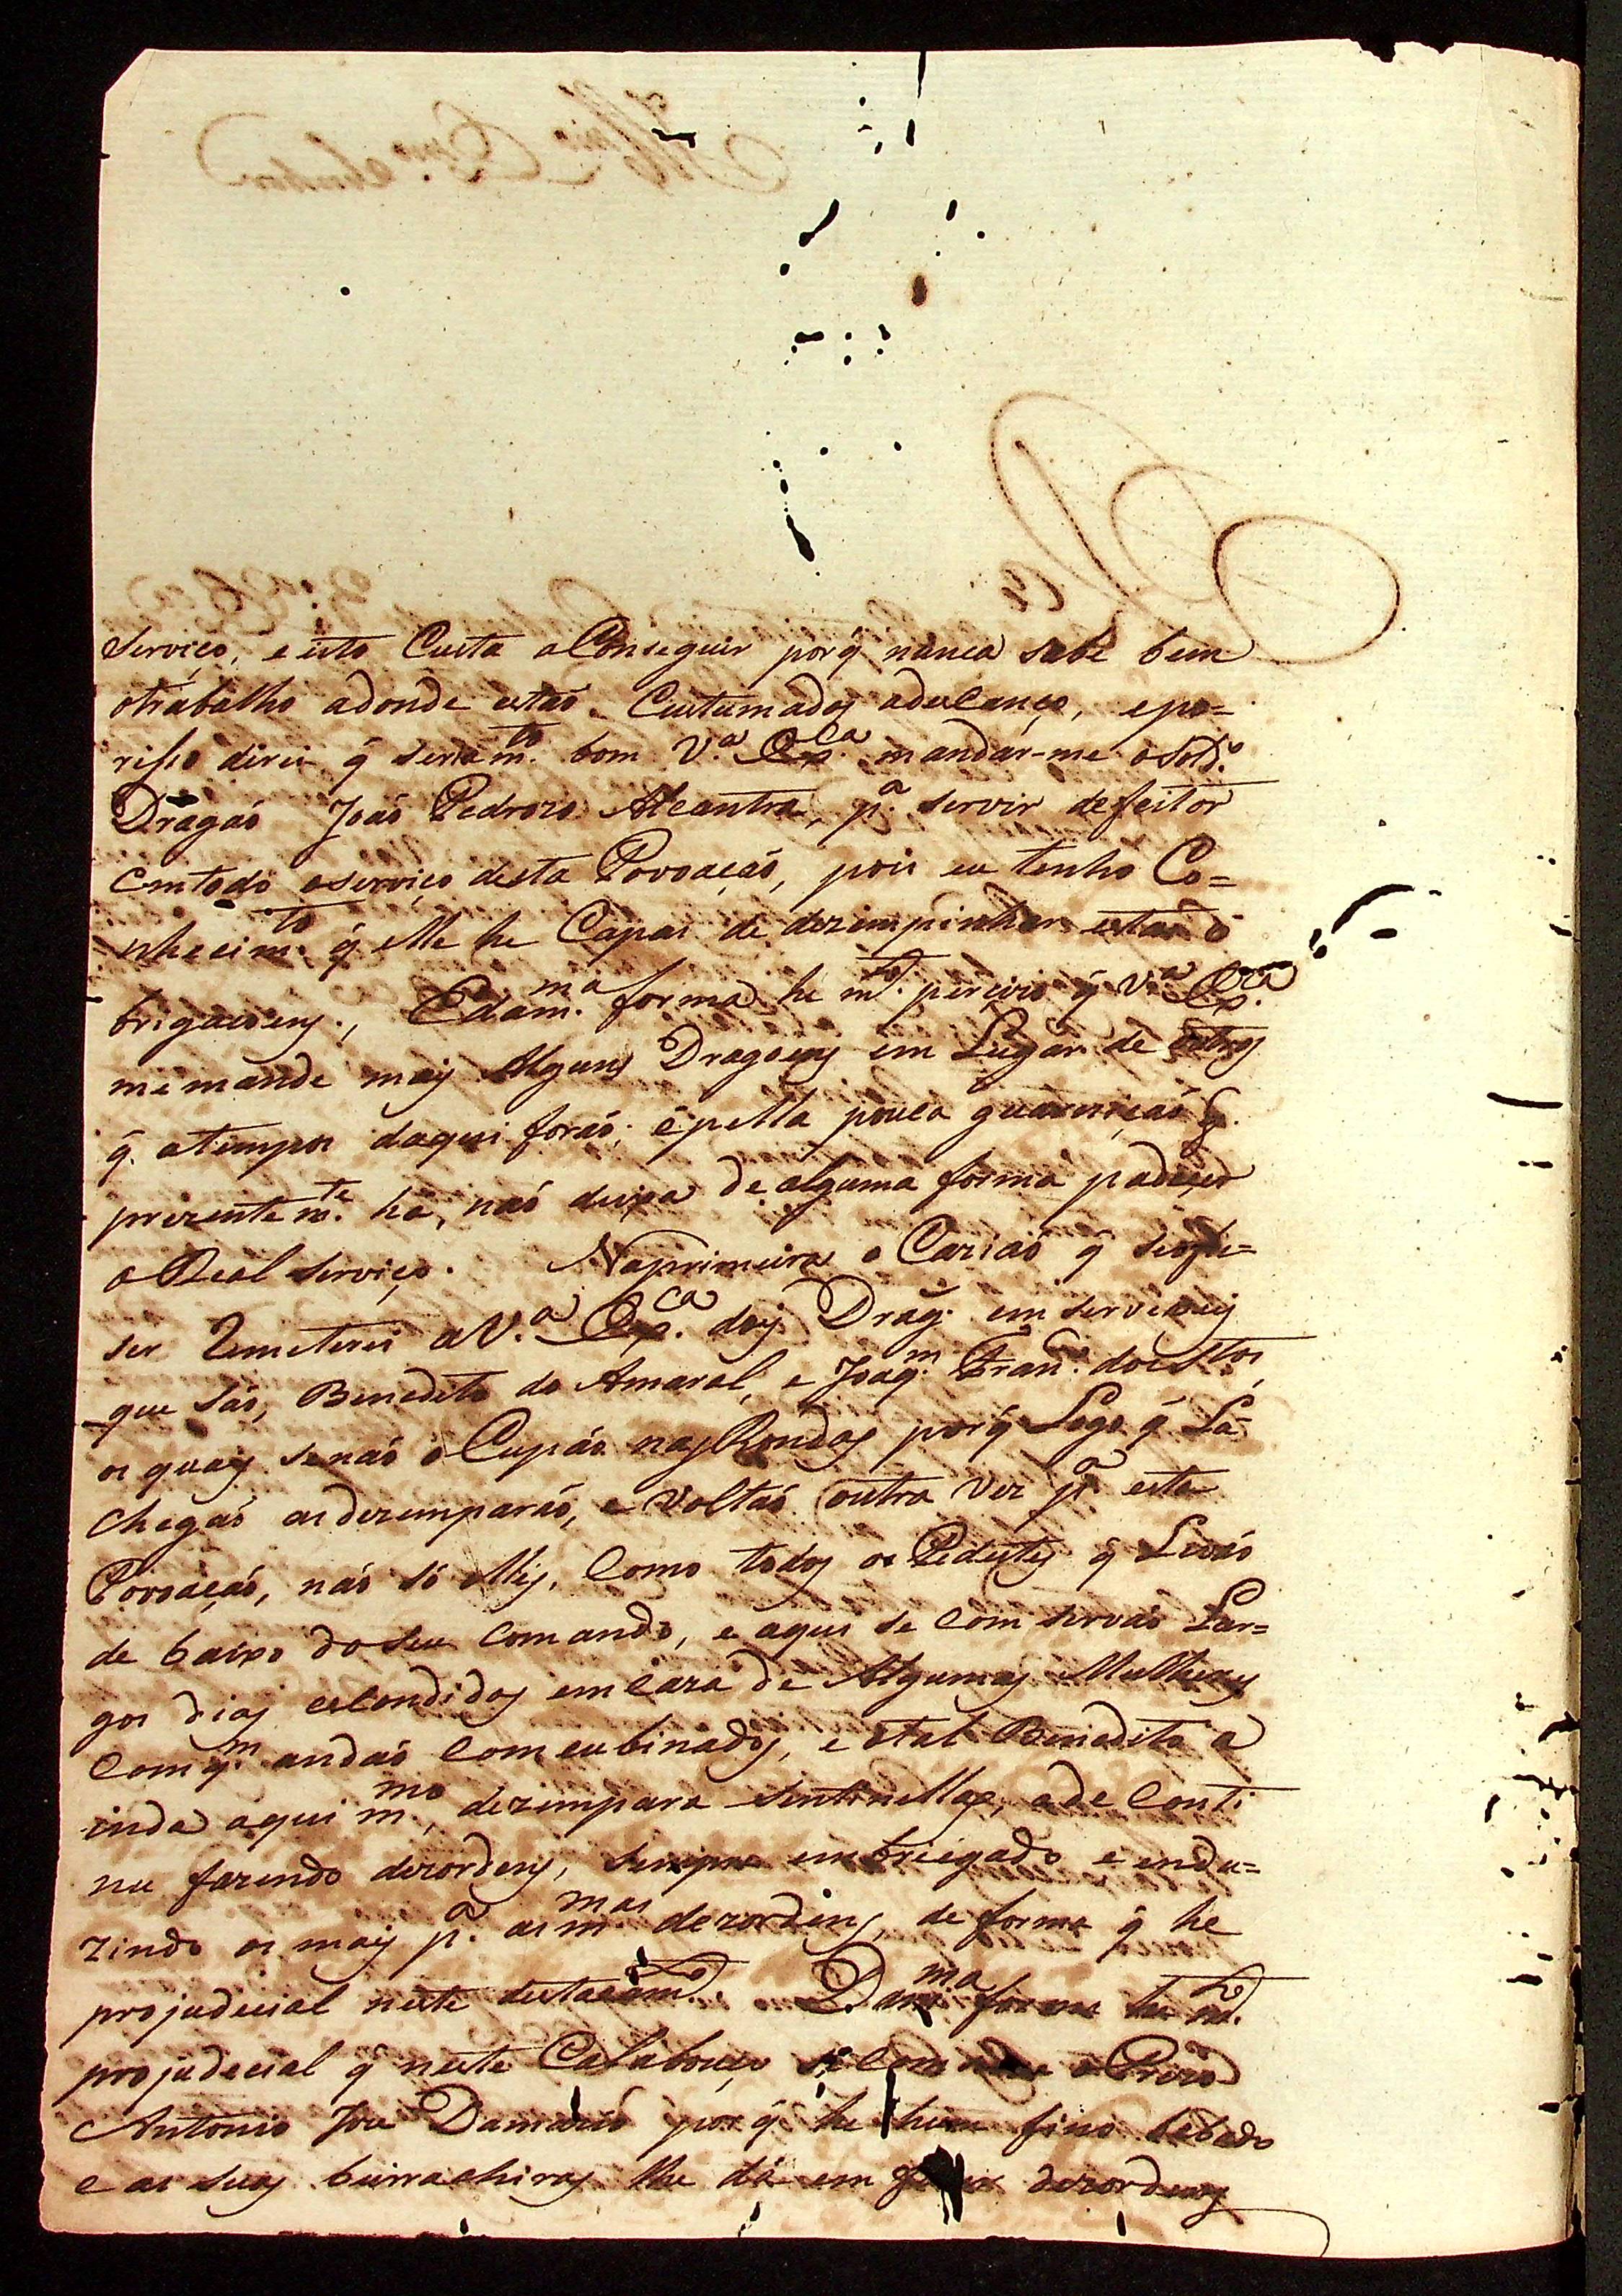 Serviço, e isto Custa aConseguir porq̃ nunca sabe bem
otrabalho adonde estaõ Custumados adescanço, epo=
risso direi q̃ seria m.to bom V.a Ex.ca mandár-me o Sold.o
Dragaõ Joaõ Pedrozo Alcantra, p.a servir defeitor
emtodo oserviço desta Povoaçaõ, pois eu tenho Co=
nhecim.to q̃ elle he Capas de dezimpinhar estas o
brigaçoens., Edam.ma forma he m.to percizo q̃ V.a Ex.ca
memande mais Alguns Dragoens em Lugar de outros
q̃ atempos daqui foraõ; epella pouca guarniçaõ q̃
prezentem.te há, naõ deixa de alguma forma padecer
o Real serviço. Naprimeira oCaziaõ q̃ seofe=
ser Remeterei aV.a Ex.ca dois Drag. em serviveis
que saõ, Benedito do Amaral, e Joaq.m Fran.co dos S.tos,
os quais senaõ oCupaõ nasRondas porq̃ Logo q̃ La
chegaõ asdezemparaõ, e Voltaõ outra Vez p.a esta
Povoaçaõ, naõ só elles, Como todos os Pedestes q̃ Levaõ
de baixo doseu Comando, e aqui se Com servaõ Lar=
gos dias esCondidos emCaza de Algumas Mulheres
Comq.m andaõ Comcubinados, e otal Benedito a
inda aqui m.mo, dezempara Sentinellas, ade Conti
nu fazendo dezordens, sempre embriegado e endu=
zindo os mais p.a as m.mas dezordens, de forma q̃ he
projudecial neste destacam.to. Dam.ma forma he m.to
projudecial q̃ neste Calabouço se o Prezo
Antonio Joze Damazio por q̃ he hum fino bebedo
e as suas burrachiras lhe dá em dezordens